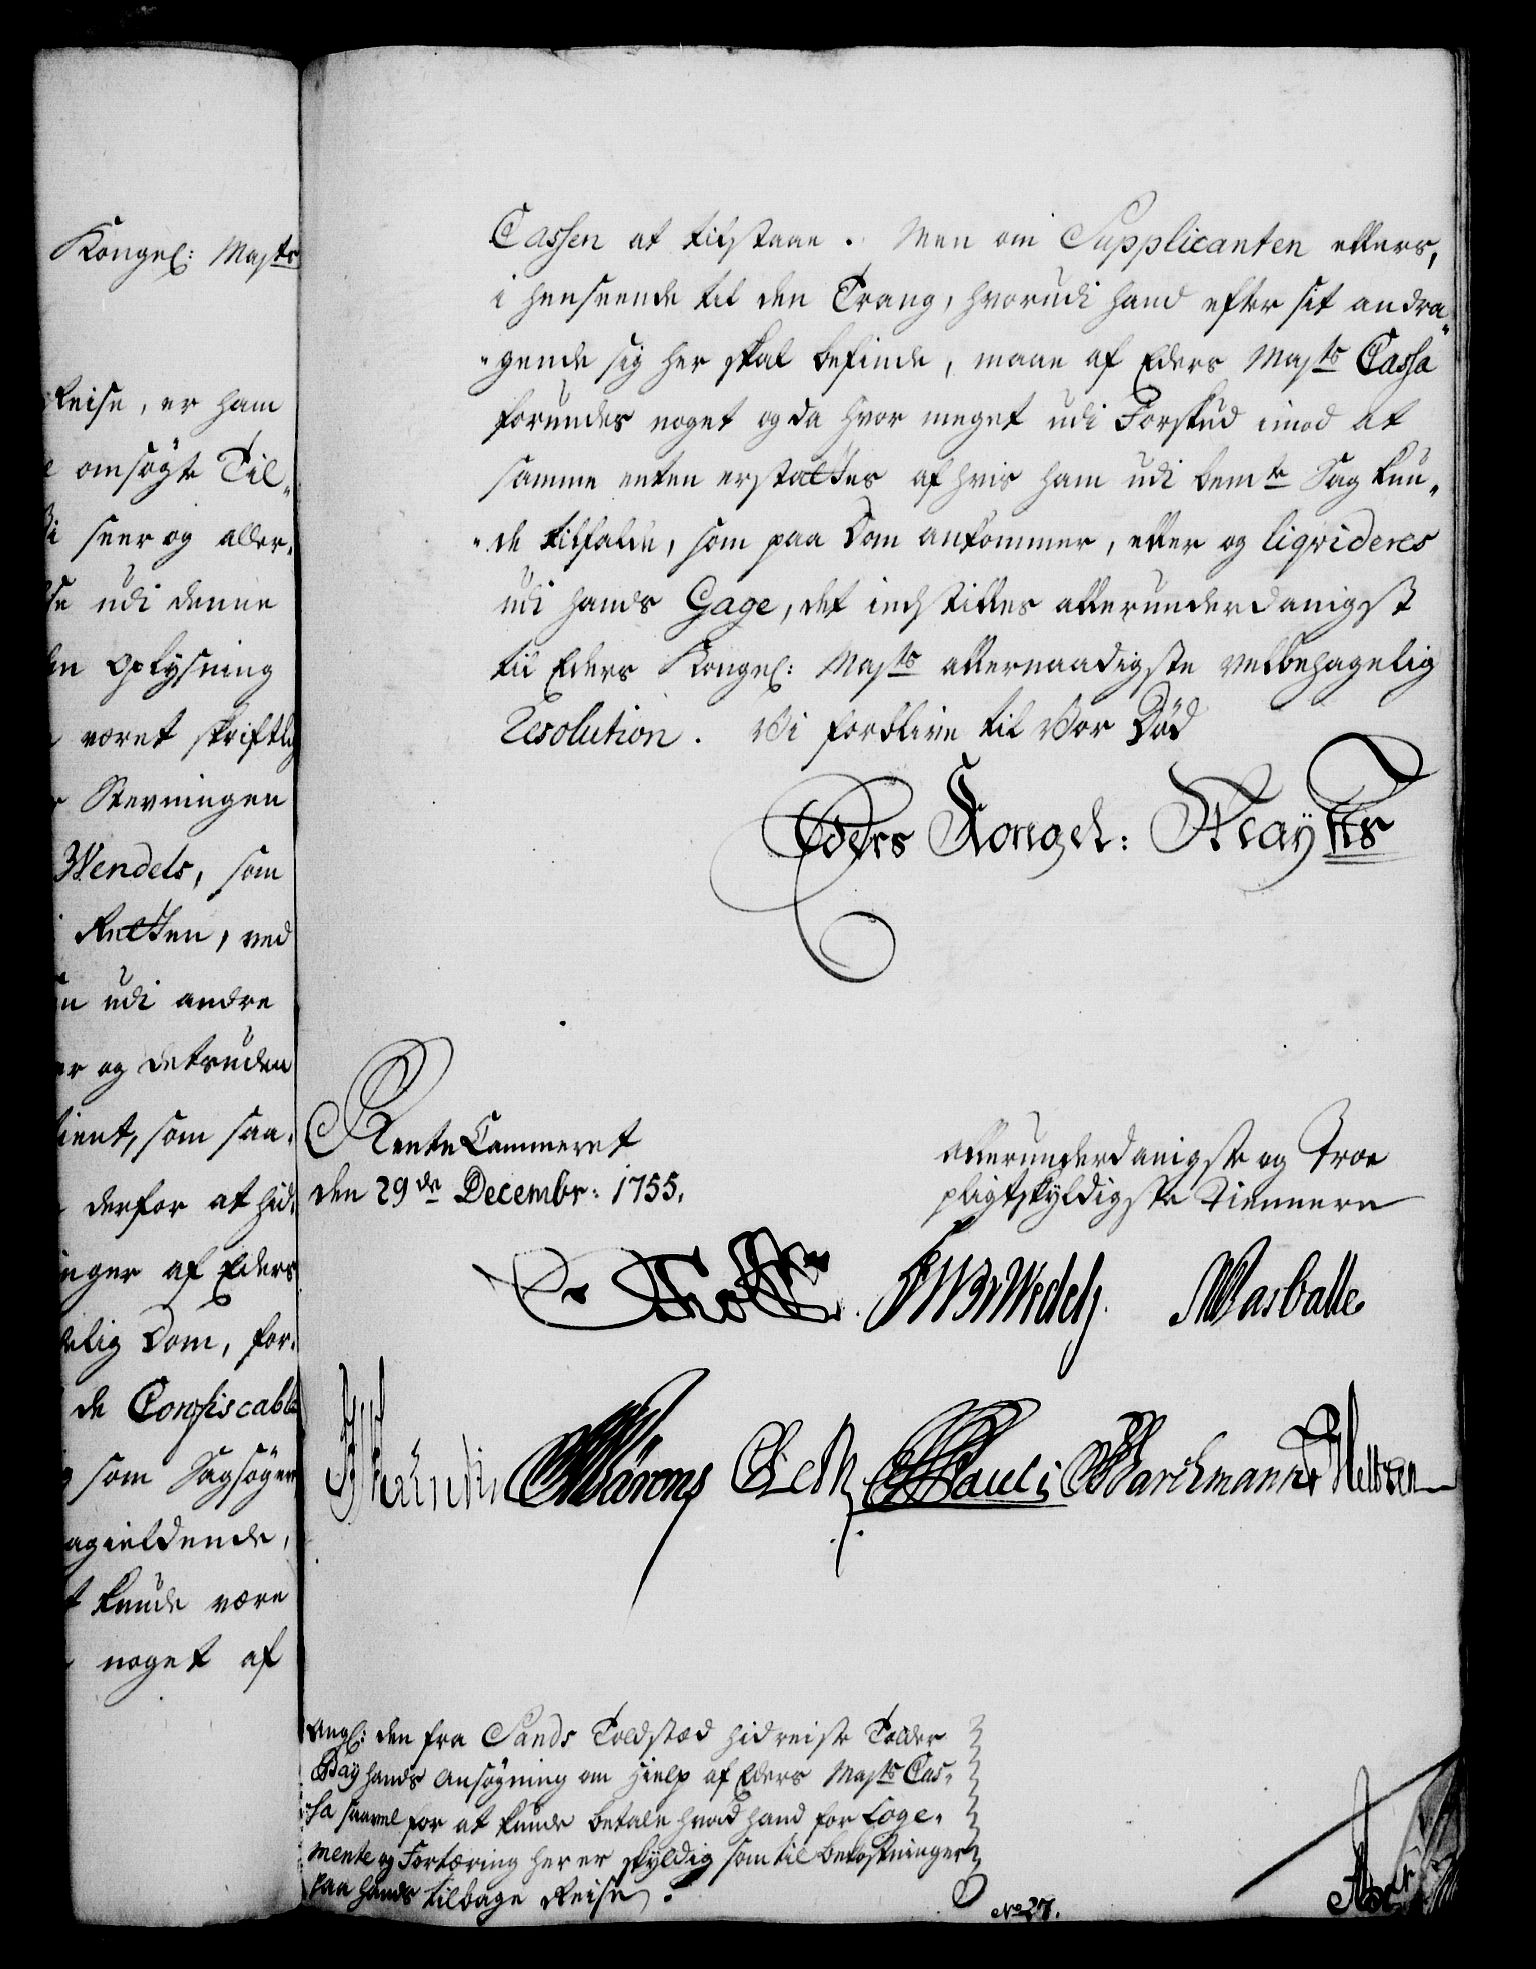 Kongel: Maj.ts
Reise, er ham
omsøgte Til„
Vi seer og aller„
udi denne
Oplysning
været skriftlig
Stevningen
Wendels, som
Retten, ved
udi andre
og desuden
som saa„
derfor at hid„
af Eders
Dom, for„
de Confiscable
som Sagsøger
agieldende,
kunde være
noget af
Cassen at tilstaae. Men om Supplicanten ellers,
i henseende til den Trang, hvorudi hand efter sit andra„
„gende sig her skal befinde, maae af Eders Maj.ts Cassa
forundes noget og da hvor meget udi Forskud imod at
samme enten erstattes af hvis ham udi bem.te Sag kun„
„de tilfalde, som paa Dom ankommer, eller og liqvideres
udi hands Gage, det indstilles allerunderdanigst
til Eders Kongel: Maj.ts allernaadigste velbehagelig
Resolution. Vi forblive til Vor Død
Eders Kongel: Mayts
RenteCammeret
den 29de Decembr: 1755.
allerunderdanigste og Troe
pligtskyldigste Tiennere
Holst FWvWedel Wasballe
Pauli Barchmann
Ang: den fra Sands Toldstæd hidreiste Tolder
Bay hands Ansøgning om Hielp af Eders Maj.ts Cas„
„sa saavel for at kunde betale hvad hand for Loge„
mente og Fortæring her er skyldig som til bekostninger
paa hands tilbage Reise.
No 27.